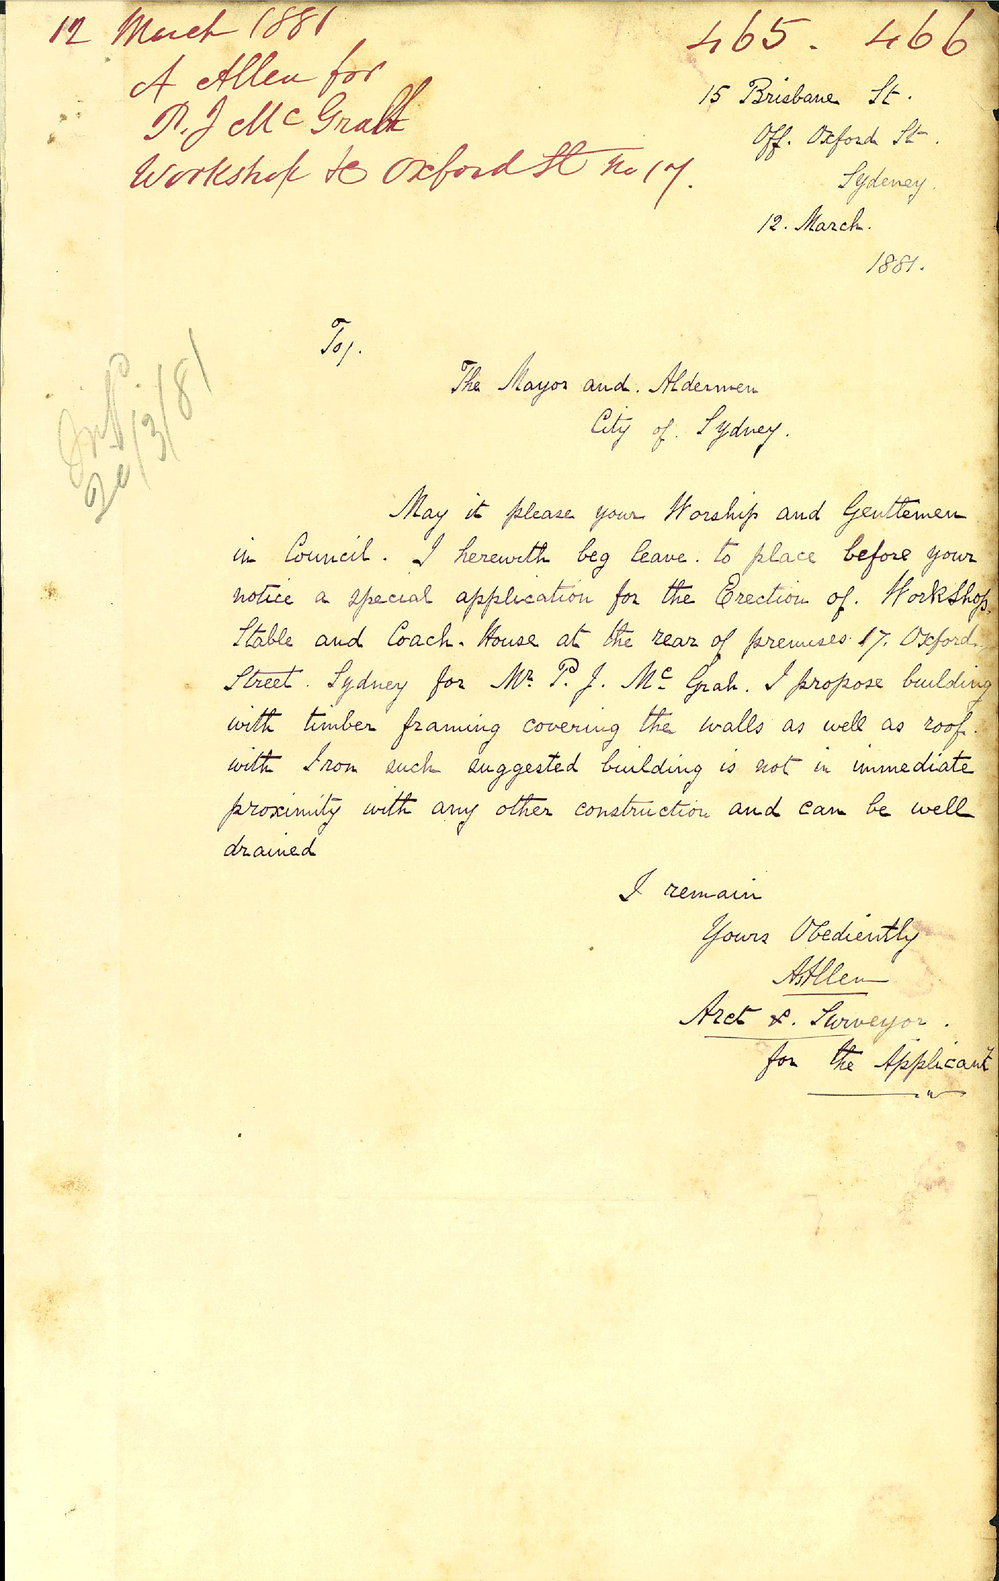 12 March 1881
A Allen for
P. J McGrath
Workshop &c Oxford St No 17.
465. 466
15 Brisbane St.
Off. Oxford St.
Sydeney.
12. March.
1881.
To,.
The Mayor and. Aldermen
City of. Sydney.
20/3/81
May it please your Worship and Gentlemen
in Council. I herewith beg leave. to place before your
notice a special application for the Erection of. WorkShop.
Stable and Coach. House at the rear of premises 17. Oxford.
Street. Sydney for Mr. P. J. Mc. Grah. I propose building
with timber framing covering the walls as well as roof.
with Iron such suggested building is not in immediate
proximity with any other construction and can be well
drained
I remain
Yours Obediently
A Allen
Arct &. Surveyor.
for the Applicant